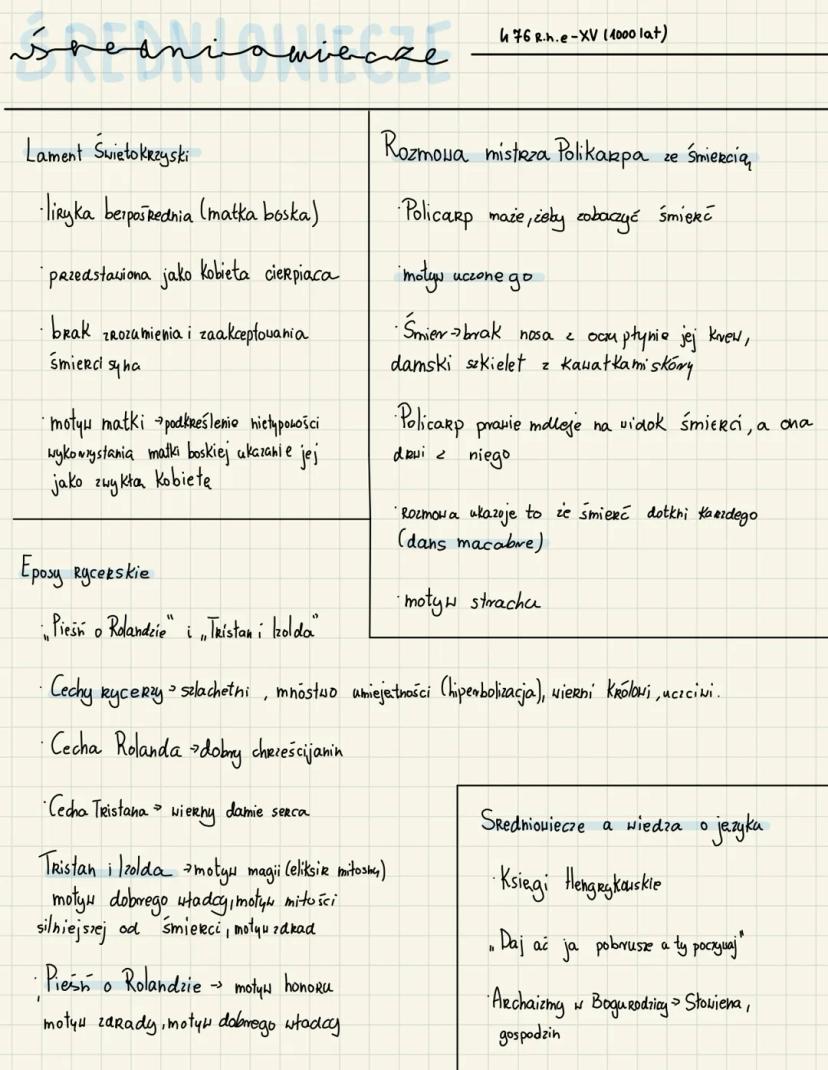 średniowiecze
476 R.n.e - XV (1000 lat)
Lament Świetokrzyski
· liryka bezpośrednia (matka boska)
· przedstawiona jako kobieta cierpiaca
· brak zrozumienia i zaakceptowania
śmierci syna
· motyw matki → podkreślenie nietypowości
wykorzystania matki boskiej ukazanie jej
jako zwykła kobietę
Rozmowa mistrza Polikarpa ze śmiercią
· Policarp maże, żeby zobaczyć śmierć
· motyw uczonego
· Śmier → brak nosa z oczu płynie jej krew,
damski szkielet z kawałkami skóry
· Policarp prawie mdleje na widok śmierci, a ona
drwi z niego
· rozmowa ukazuje to że śmierć dotkni każdego
(dans macabre)
· motyw strachu
Eposy rycerskie
· „Pieśń o Rolandzie" i „Tristan i Izolda"
· Cechy rycerzy → szlachetni, mnóstwo umiejętności (hiperbolizacja), wierni królowi, uczciwi.
· Cecha Rolanda → dobry chrześcijanin
· Cecha Tristana → wierny damie serca
Tristan i Izolda → motyw magii (eliksir miłosny)
motyw dobrego władcy, motyw miłości
silniejszej od śmierci, motyw zdrad
· Pieśń o Rolandzie → motyw honoru
motyw zdrady, motyw dobrego władcy
Sredniowiecze a wiedza o jezyku
· Ksiegi Hengrykowskie
„Daj ać ja pobrusze a ty poczywaj"
· Archaizmy w Bogurodzicy → Słowiena,
gospodzin